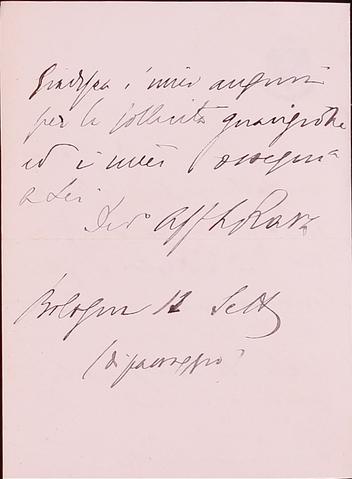 Gradisca i miei auguri
per la sollecita guarigione
ed i miei ossequi
a Lei
Dev°
Bologna 12 Sett
(di passaggio)